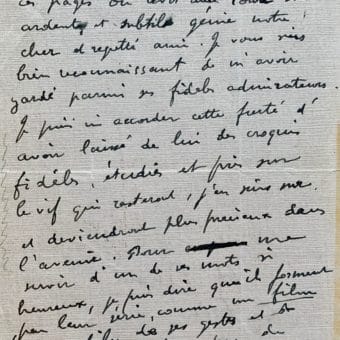 ces pages ou
ardent et subtil génie notre
cher et regretté ami. Je vous suis
bien reconnaissant de m'avoir
gardé parmi ses fidèles admirateurs.
Je puis m'accorder cette fierté d'
avoir laissé de lui des croquis
fidèles, étudiés et pris sur
le vif qui resteront, j'en suis sur.
et deviendront plus précieux dans
l'avenir. Pour me
servir d'un de ses mots si
heureux, je puis dire qu'ils forment
par leur série, comme un film
de ses gestes et
de